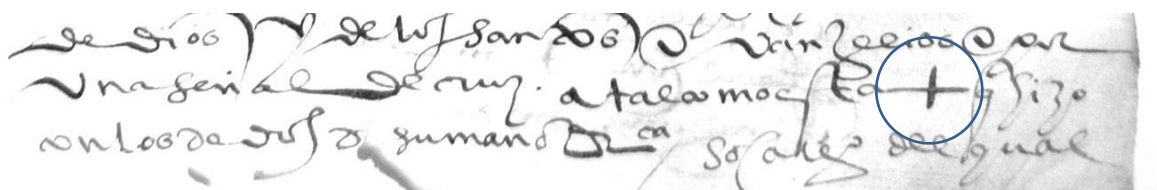 de dios y de los santos evangelios e por
una señal de cruz. a tal como esta + q hizo
con los dedos de su mano dr ca so cargo del qual